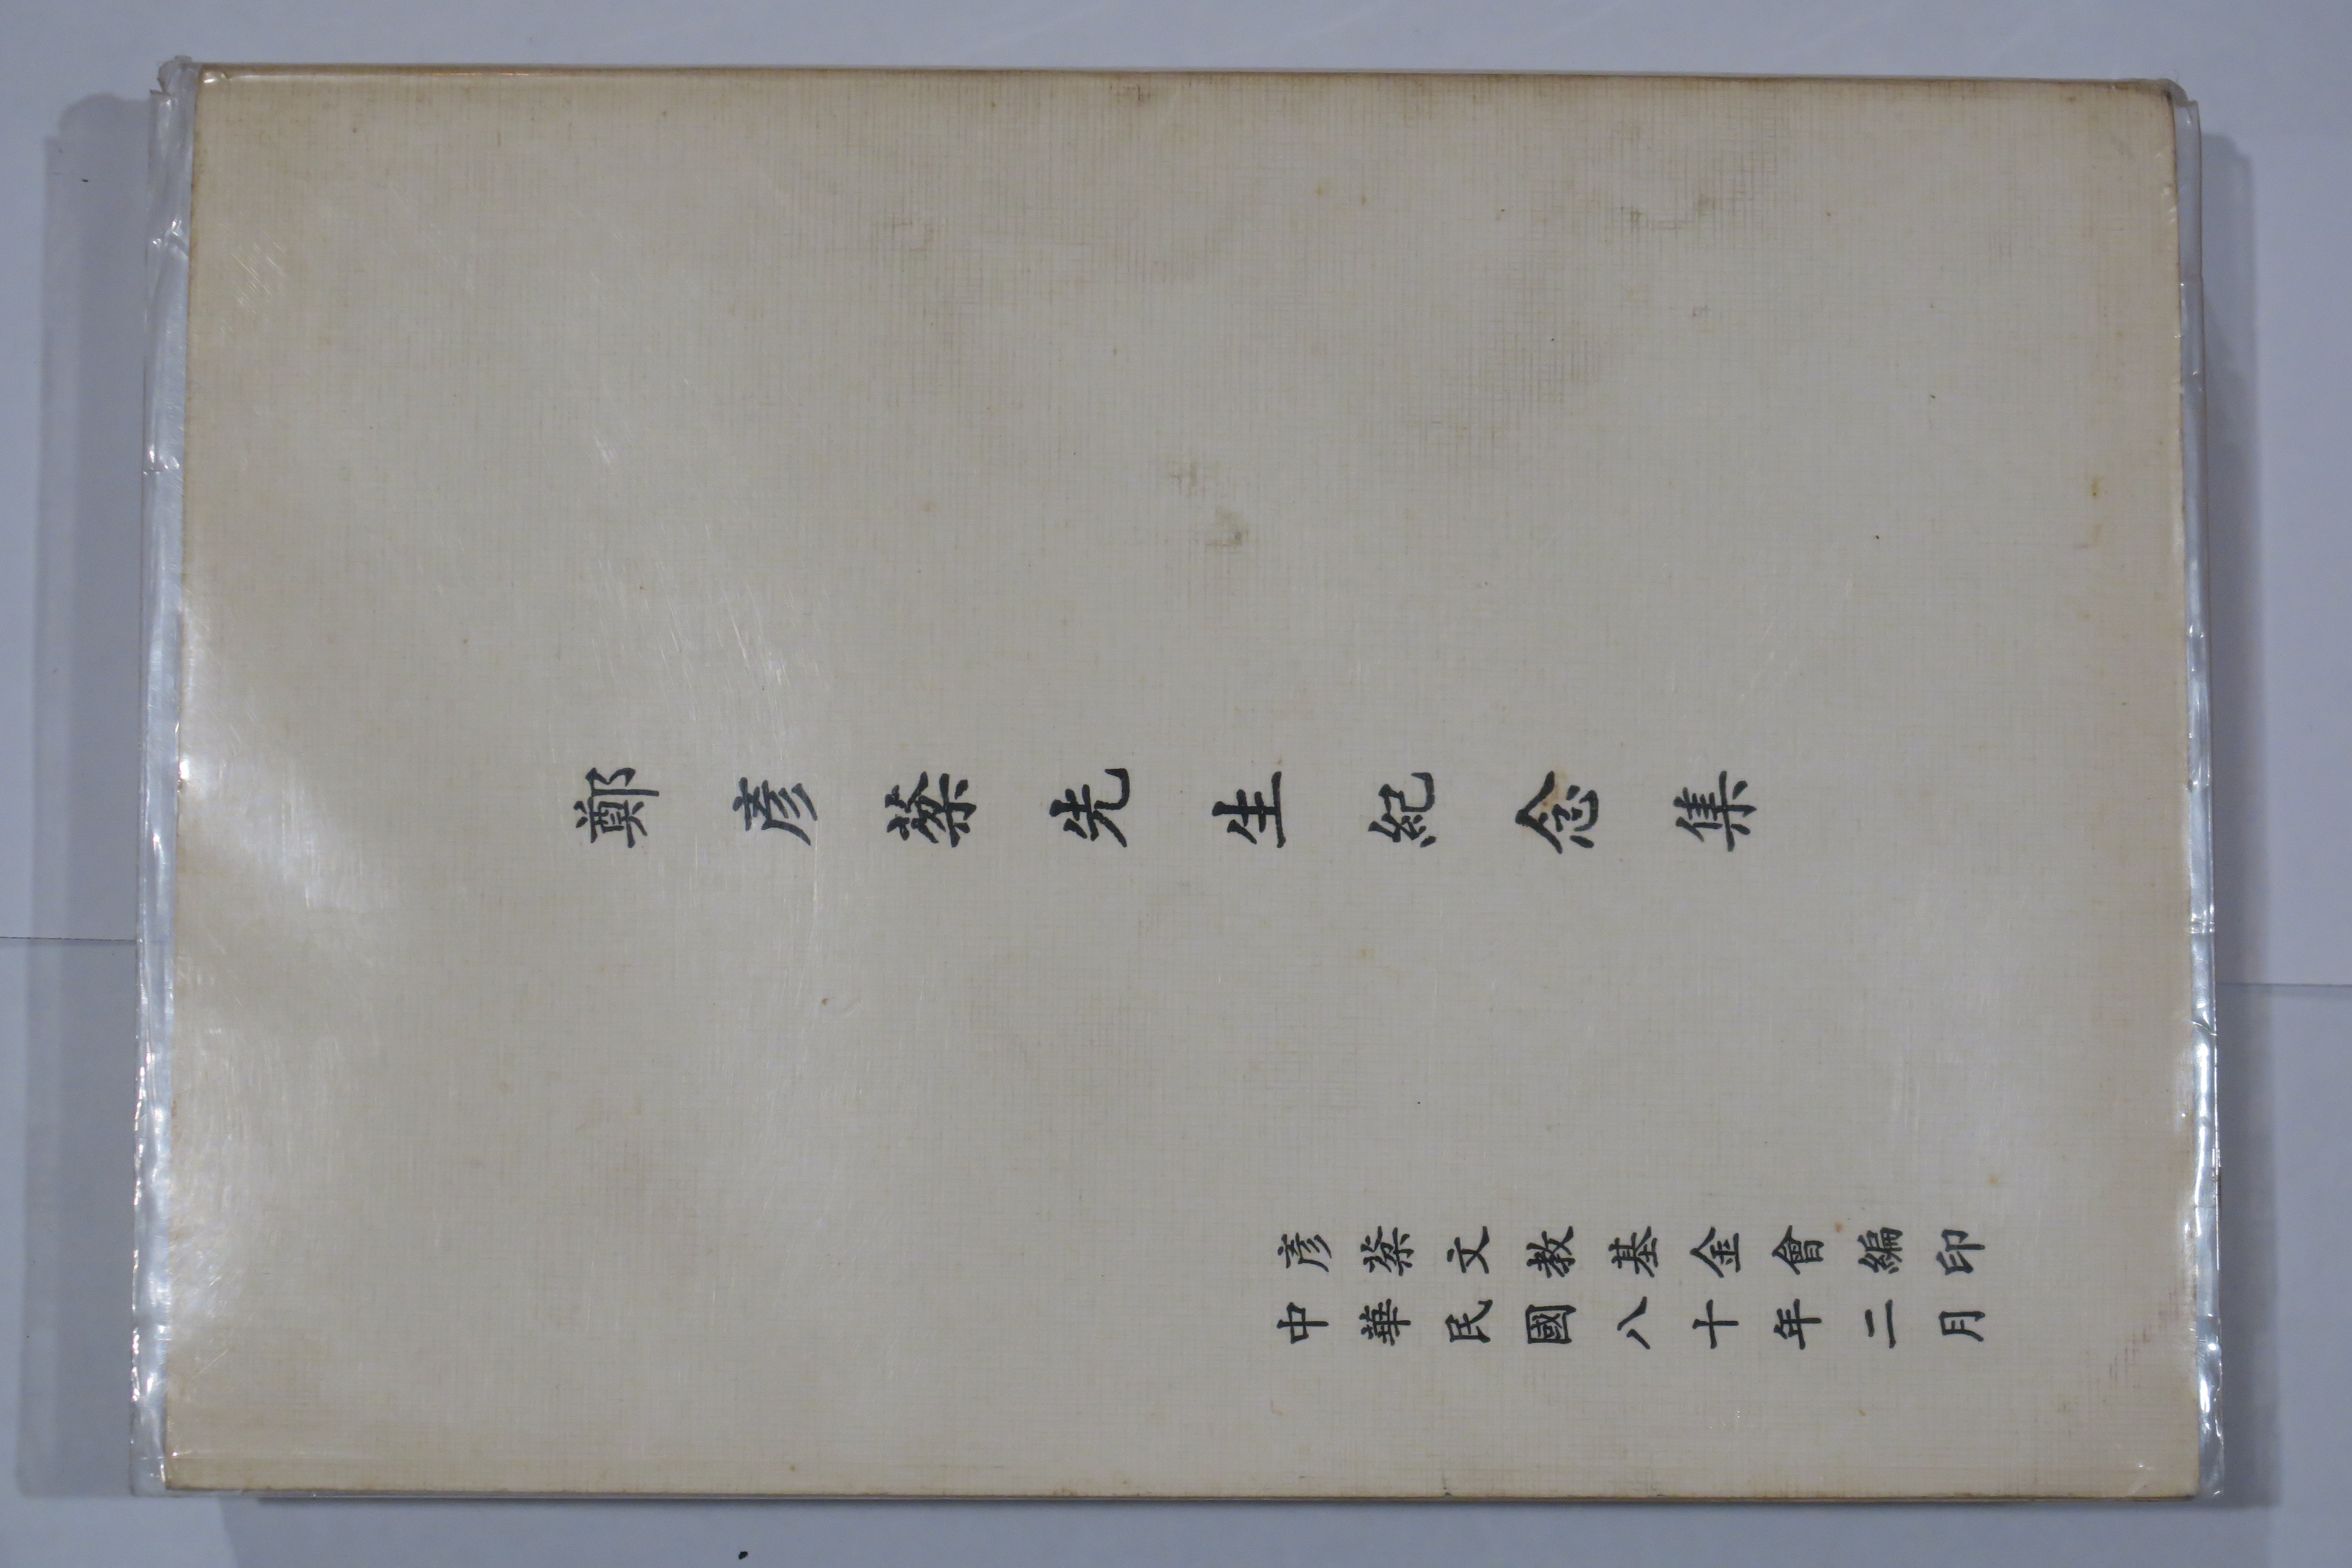 鄭彥棻先生紀念集
彥棻文教基金會編印
中華民國八十年二月